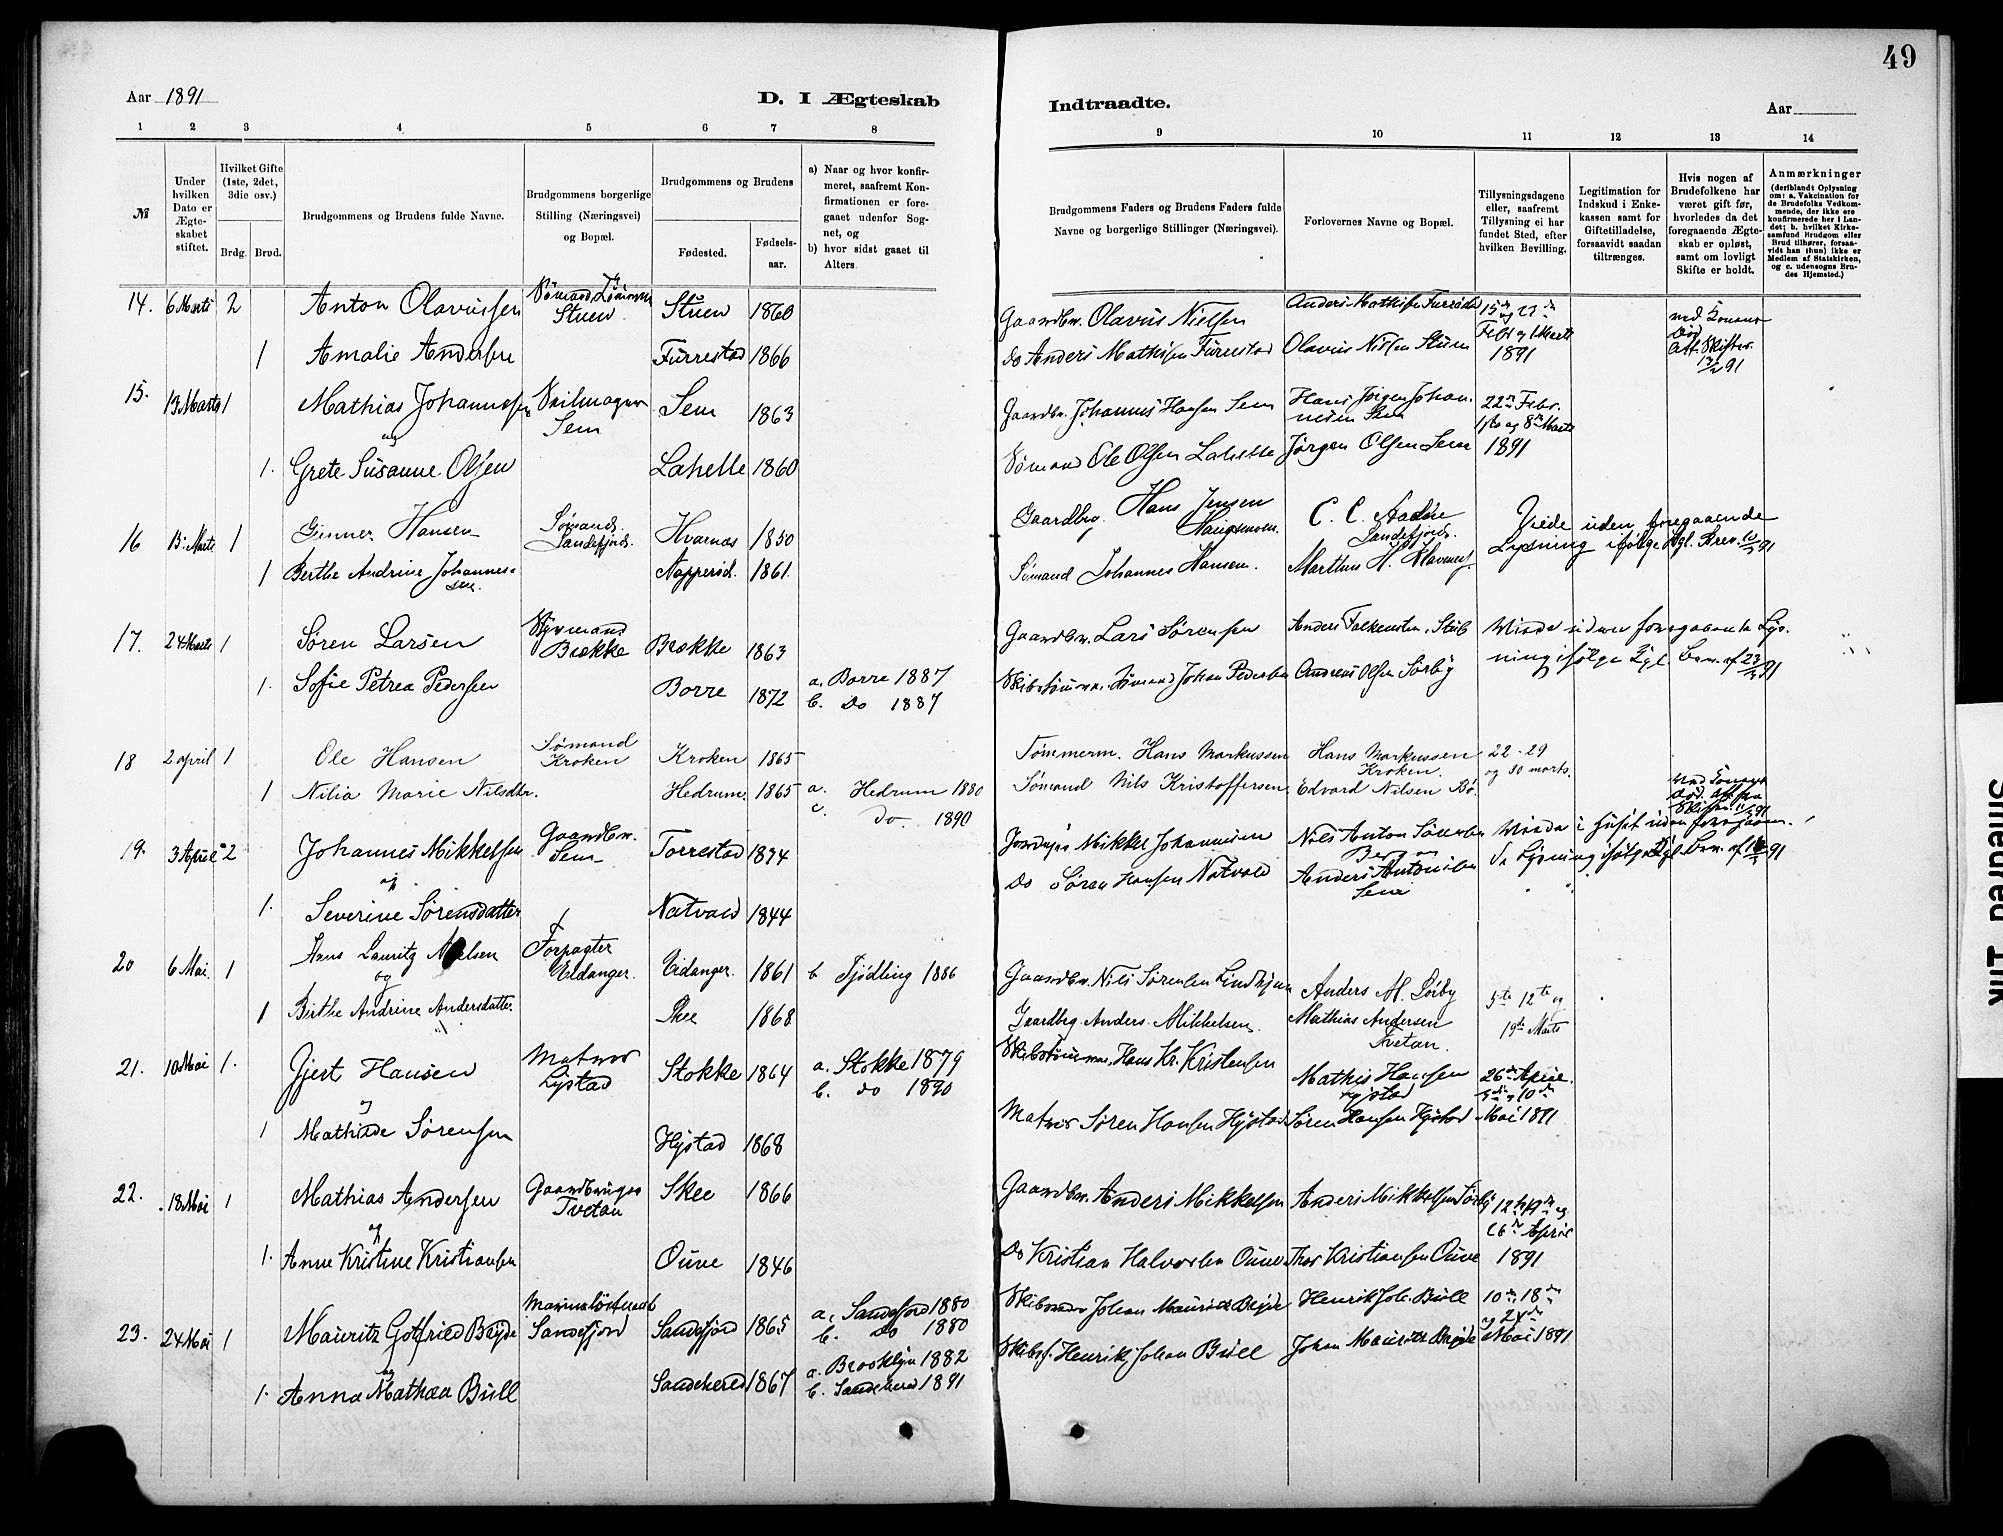 49
Aar 1891
D. I Ægteskab
Indtraadte.
Aar
1 2 3 4 5 6 7 8 9 10 11 12 13 14
№
Under hvilken Dato er Ægteskabet stiftet.
Hvilket Gifte (1ste, 2det, 3die osv.)
Brdg. Brud.
Brudgommens og Brudens fulde Navne.
Brudgommens borgerlige Stilling (Næringsvei) og Bopæl.
Brudgommens og Brudens
Fødested.
Fødselsaar.
a) Naar og hvor konfirmeret, saafremt Konfirmationen er foregaaet udenfor Sognet, og
b) hvor sidst gaaet til Alters.
Brudgommens Faders og Brudens Faders fulde Navne og borgerlige Stillinger (Næringsvei).
Forlovernes Navne og Bopæl.
Tillysningsdagene eller, saafremt Tillysning ei har fundet Sted, efter hvilken Bevilling.
Legitimation for Indskud i Enkekassen samt for Giftetilladelse, forsaavidt saadan tiltrænges.
Hvis nogen af Brudefolkene har været gift før, hvorledes da det foregaaende Ægteskab er opløst, samt om lovligt Skifte er holdt.
Anmærkninger
(deriblandt Oplysning om: a. Vakcination for de Brudefolks Vedkommende, der ikke ere konfirmerede her i Landet; b. hvilket Kirkesamfund Brudgom eller Brud tilhører, forsaavidt han (hun) ikke er Medlem af Statskirken, og c. udensogns Brudes Hjemsted.)
14. 6 Marts 2 Anton Olavussen Sømand Stuen Stuen 1860 Gaardbr. Olavus Nielsen Anders Mathisen Furrestad 15de og 22de
1 Amalie Andersen Furrestad 1866 Do Anders Mathisen Furrestad Olavus Nilsen Stuen Febr og 1 Marts 1891
15. 13 Marts 1 Mathias Johannesen Seilmager Sem Sem 1863 Gaardbr. Johannes Hansen Sem Hans Jørgen Johannesen Sem 22de Febr. 1ste og 8de Marts
og
1. Grete Susanne Olsen Lahelle 1860 Sømand Ole Olsen Lahelle Jørgen Olsen Sem 1891
16 15. Marts 1 Gunner Hansen Sømand. Sandefjord. Hvarnæs 1850 Gaardbrg. Hans Jensen C. C. Sandefjord. Viede uden foregaaende Lysning ifølge Kgl. Brev. 91
1 Berthe Andrine Johannessen. Napperød. 1861. Sømand Johannes Hansen. Marthin H.
17. 24 Marts 1 Søren Larsen Styrmand Brække Brække 1863 Gaardbr. Lars Sørensen Anders Falkensten, Stub Viede uden foregaaende Lysning ifølge Kgl. Bev. af 23/3 91
1. Sofie Petrea Pedersen Borre 1872 a. Borre 1887 b. Do 1887 Skibstømm. Sømand Johan Pedersen Andreas Olsen Sørby
18 2 april 1 Ole Hansen Sømand Kroken Kroken 1865 Tømmerm. Hans Markussen Hans Markussen Kroken. 22 - 29 og 30 marts.
1 Nilia Marie Nilsdtr. Hedrum. 1865 a. Hedrum 1880 do. 1890 Sømand Nils Kristoffersen Edvard Nilsen Bø.
19. 3 April 2 Johannes Mikkelsen Gaardbr. Sem Torrestad 1834 Mikkel Johannesen Nils Anton Viede i Huset uden foregaaende Lysning ifølge Kgl. Bev. af 91
og
1. Severine Sørensdatter Natvald 1844 Do Søren Hansen Natvald Anders Antonisen Sem
20 6 Mai. 1 Hans Lauritz Nielsen Forpagter Eidanger. Eidanger. 1861 b Tjødling 1886 Gaardbr. Nils Sørensen Lindhjem Anders M. Sørby 5te 12te og
og
1 Birthe Andrine Andersdatter. Skee 1868 Gaardbrg. Anders Mikkelsen. Mathias Andersen Tvetan. 19de Marts
21. 10 Mai 1. Gjert Hansen Matros Lystad Stokke 1864 a. Stokke 1879 b. do 1890 Skibstømm. Hans Kr. Kristensen Mathis Hansen 26de April. 3die og 10de
og
1 Mathilde Sørensen Hystad 1868 Matros Søren Hansen Hystad Søren Hansen Hystad Mai 1891
22. 18 Mai 1 Mathias Andersen Gaardbruger Tvetan Skee 1866 Gaardbr. Anders Mikkelsen Anders Mikkelsen Sørby 12te 19de og 26de April
og
1. Anne Kristine Kristiansen Ouve 1846 Do Kristian Halvorsen Ouve Thor Kristiansen Ouve 1891
23. 24 Mai 1 Mauritz Gotfried Bryde Marineløitnant Sandefjord Sandefjord 1865 a. Sandefjord 1880 b. do 1880 Skibsreder Johan Mauritz Bryde Henrik Joh. Bull 10de 18de og 24de
og
1. Anna Mathea Bull Sandeherred 1867 a. Brooklyn 1882 b. Sandeherred 1891 Skibsf. Henrik Johan Bull Johan Mauritz Bryde Mai 1891